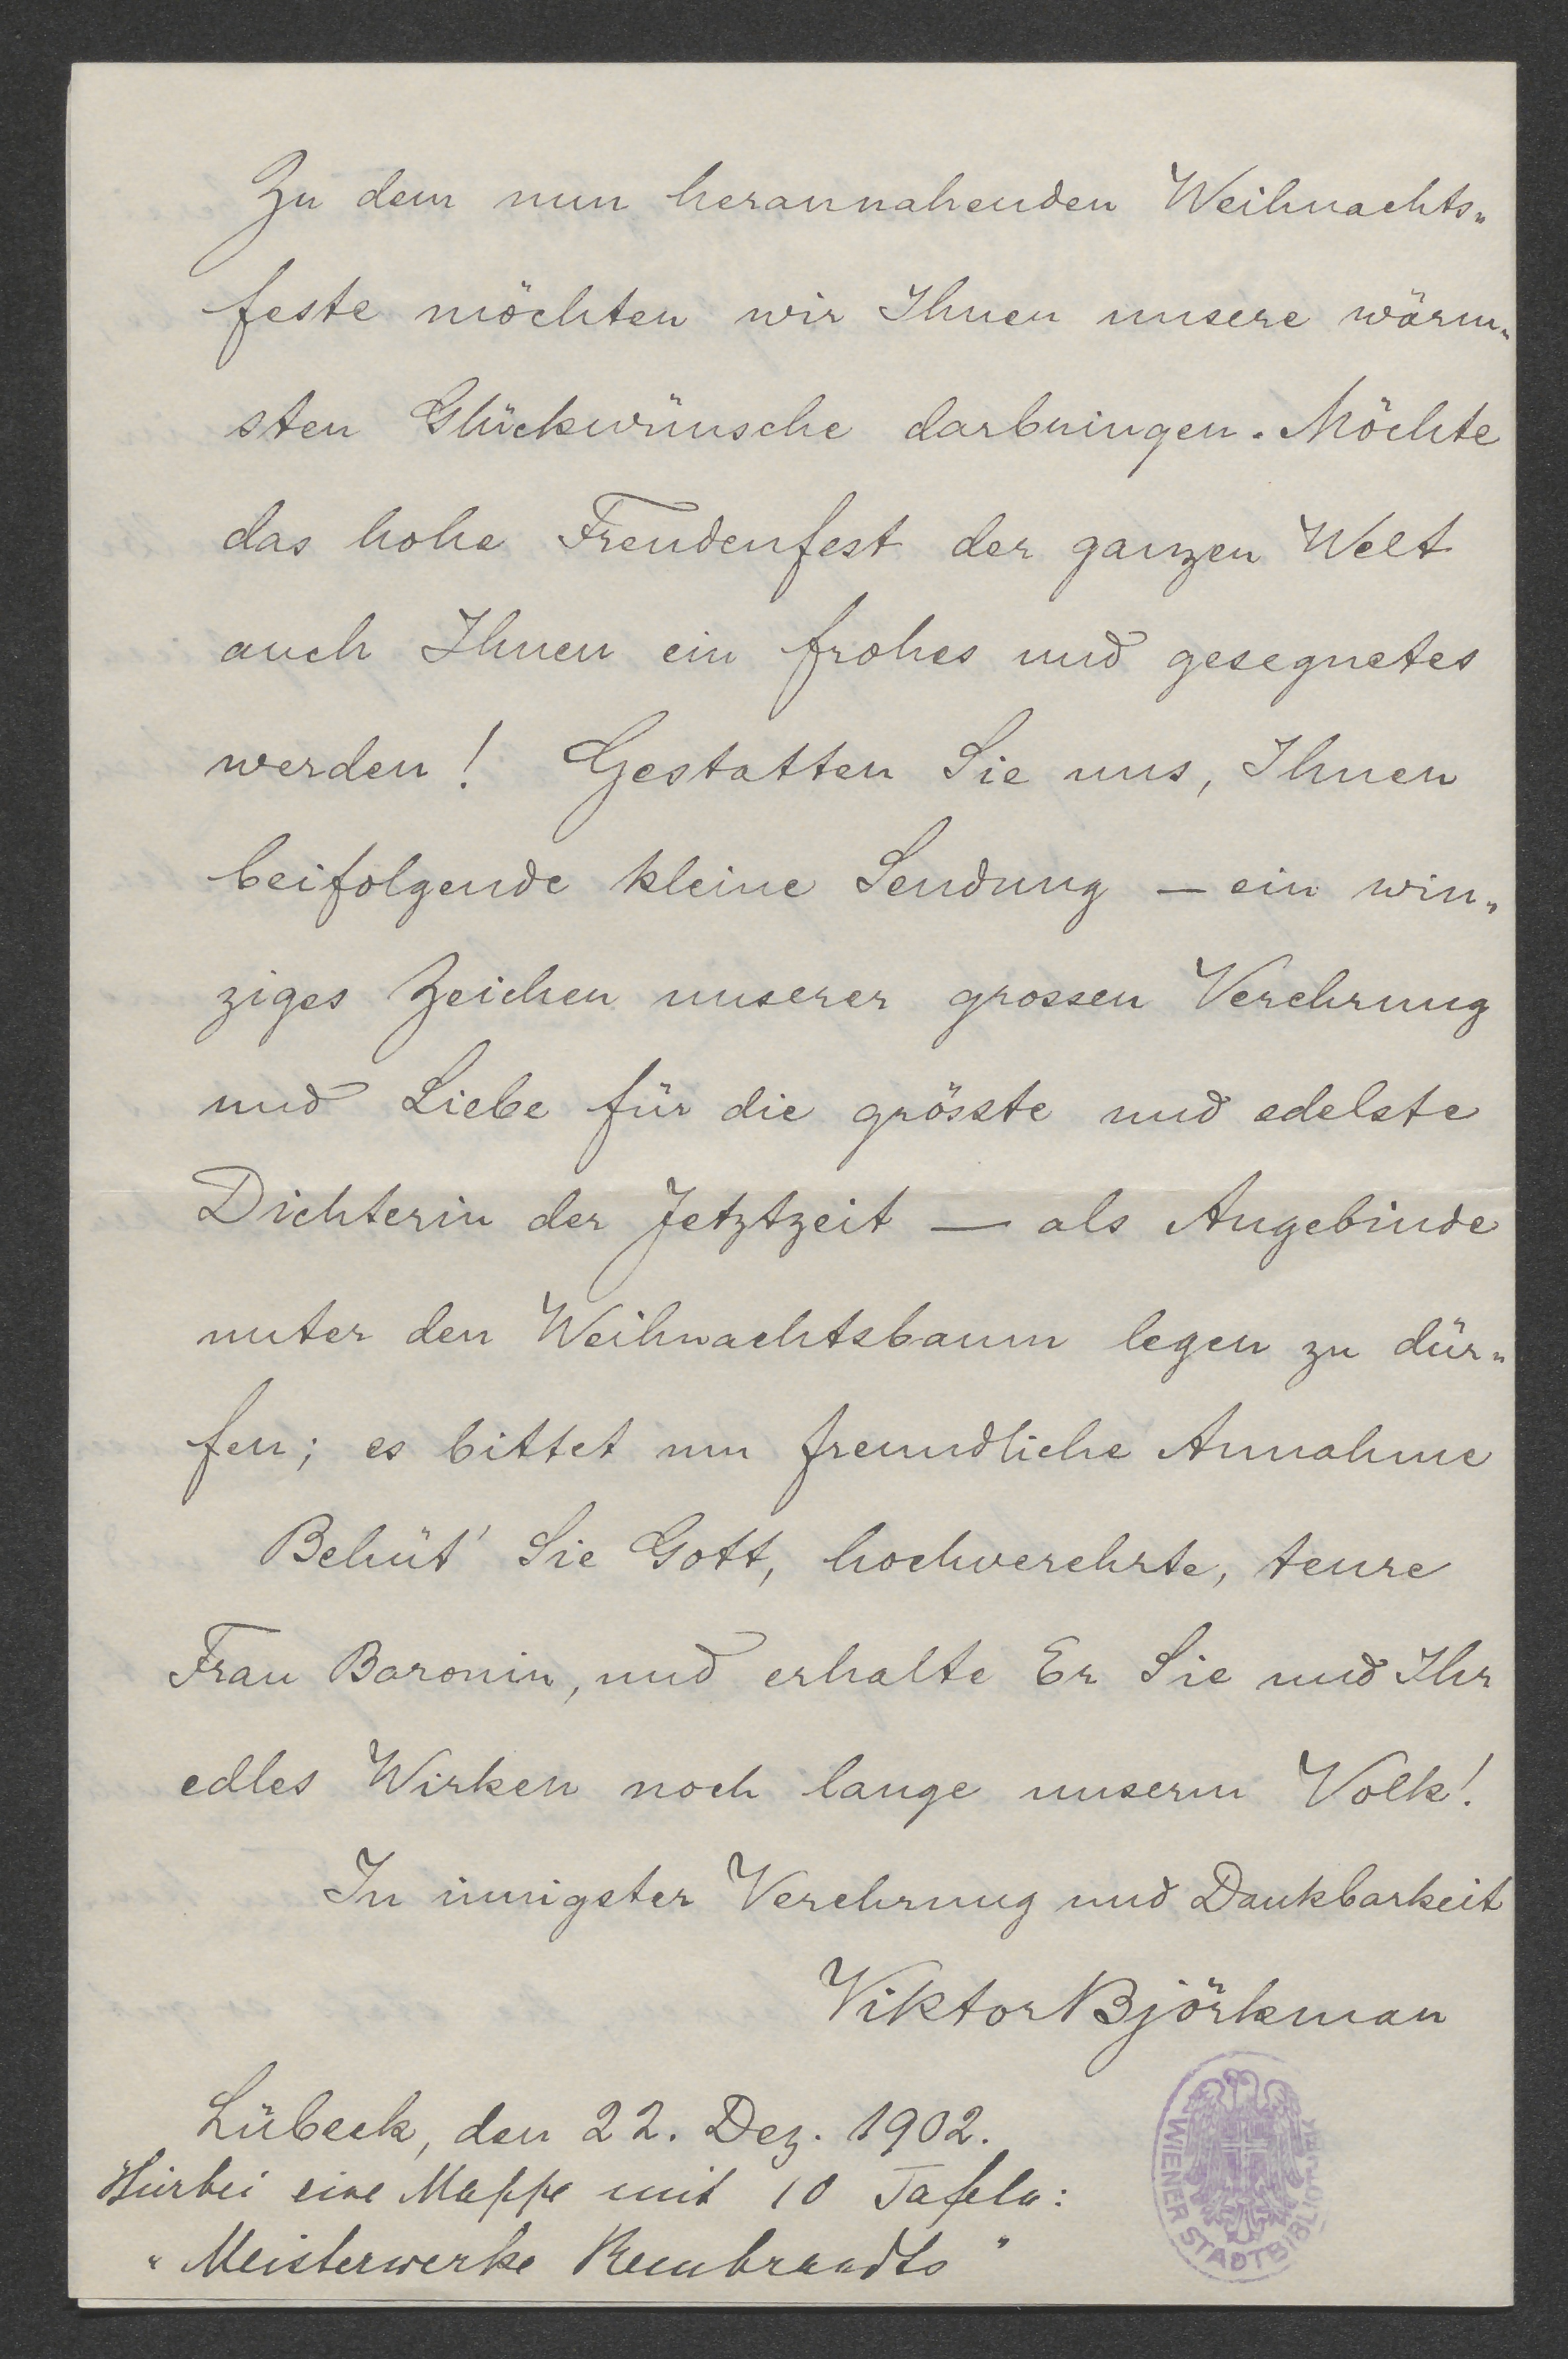 Zu dem nun herannahenden Weihnachts„
feste möchten wir Ihnen unsere wärm„
sten Glückwünsche darbringen. Möchte
das hohe Freudenfest der ganzen Welt
auch Ihnen ein frohes und gesegnetes
werden! Gestatten Sie uns, Ihnen
beifolgende kleine Sendung — ein win„
ziges Zeichen unserer grossen Verehrung
und Liebe für die grösste und edelste
Dichterin der Jetztzeit — als Angebinde
unter den Weihnachtsbaum legen zu dür„
fen; es bittet um freundliche Annahme
Behüt' Sie Gott, hochverehrte, teure
Frau Baronin, und erhalte Er Sie und Ihr
edles Wirken noch lange unserm Volk!
In innigster Verehrung und Dankbarkeit
Viktor Björkman
Lübeck, den 22. Dez. 1902.
Hierbei eine Mappe mit 10 Tafeln:
„Meisterwerke Rembrandts"
WIENER STADTBIBLIOTHEK